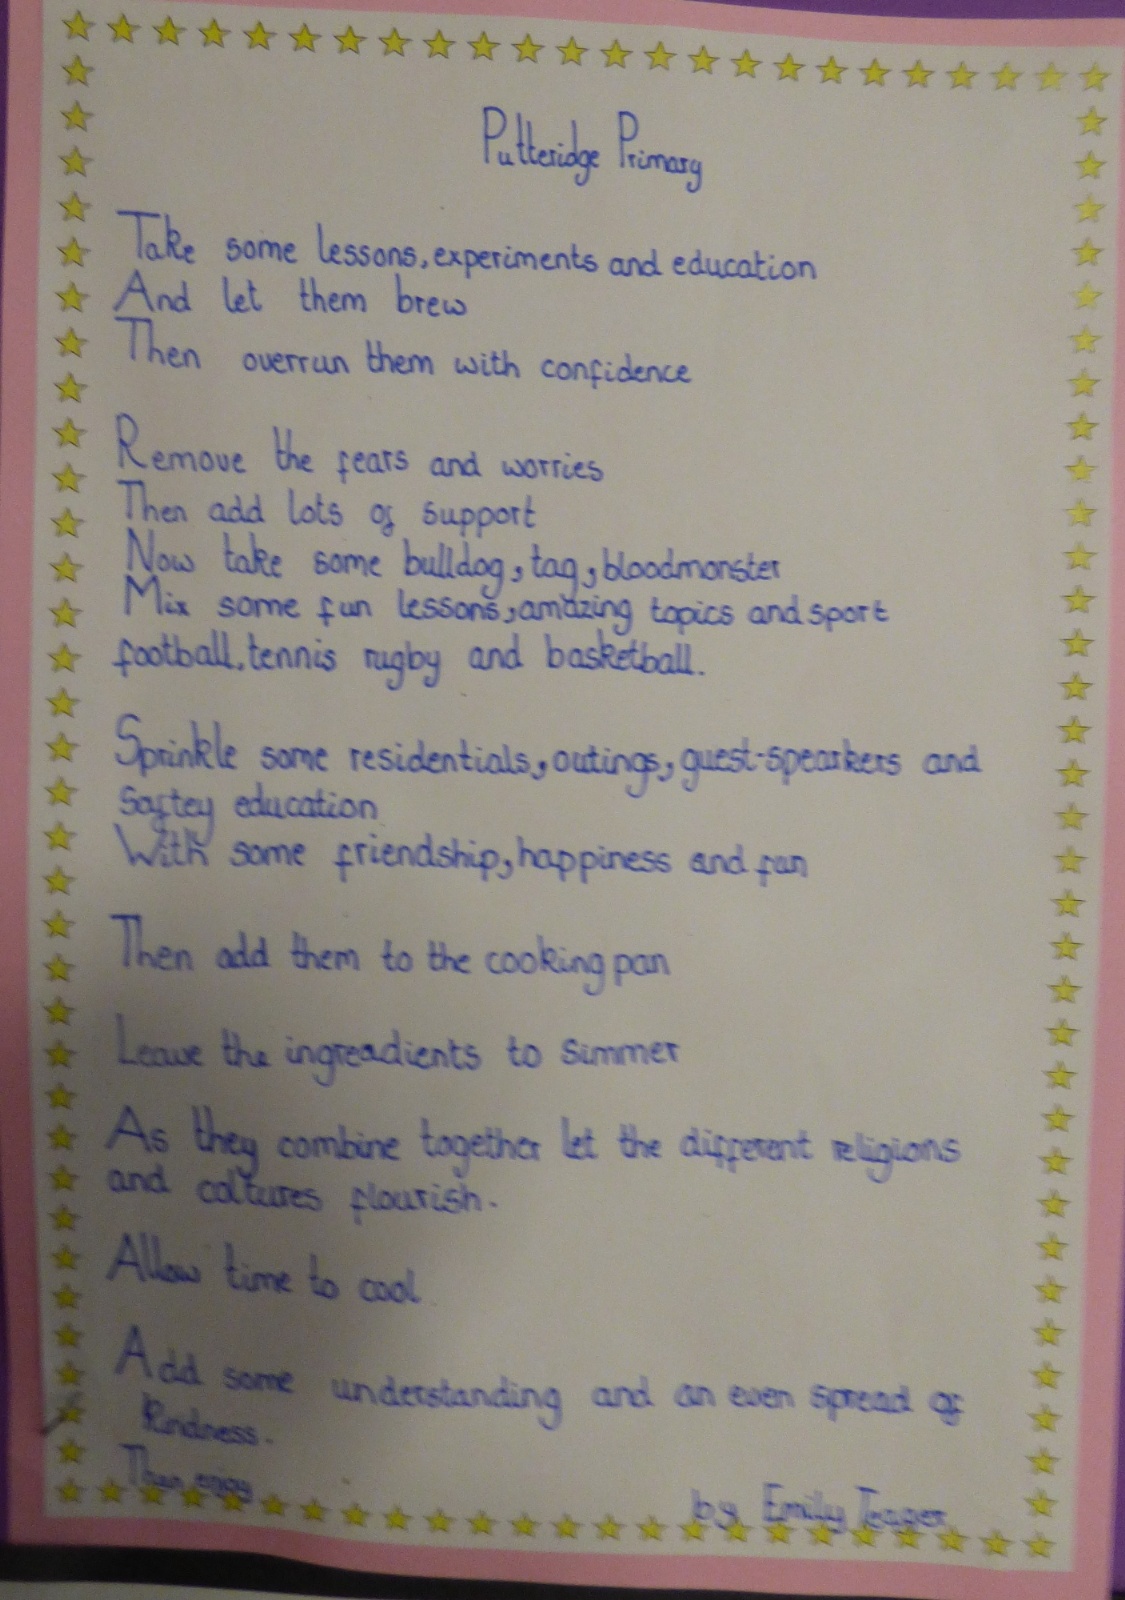 Putteridge Primary
Take some lessons, experiments and education
And let them brew
Then overrun them with confidence
Remove the fears and worries
Then add lots of support
Now take some bulldog, tag, bloodmonster
Mix some fun lessons, amazing topics and sport
football, tennis rugby and basketball.
Sprinkle some residentials, outings, guest-spearkers and
saftey education
With some friendship, happiness and fun
Then add them to the cooking pan
Leave the ingreadients to simmer
As they combine together let the different religions
and coltures flourish.
Allow time to cool
Add some understanding and an even spread of
kindness.
Then enjoy
by Emily Teager